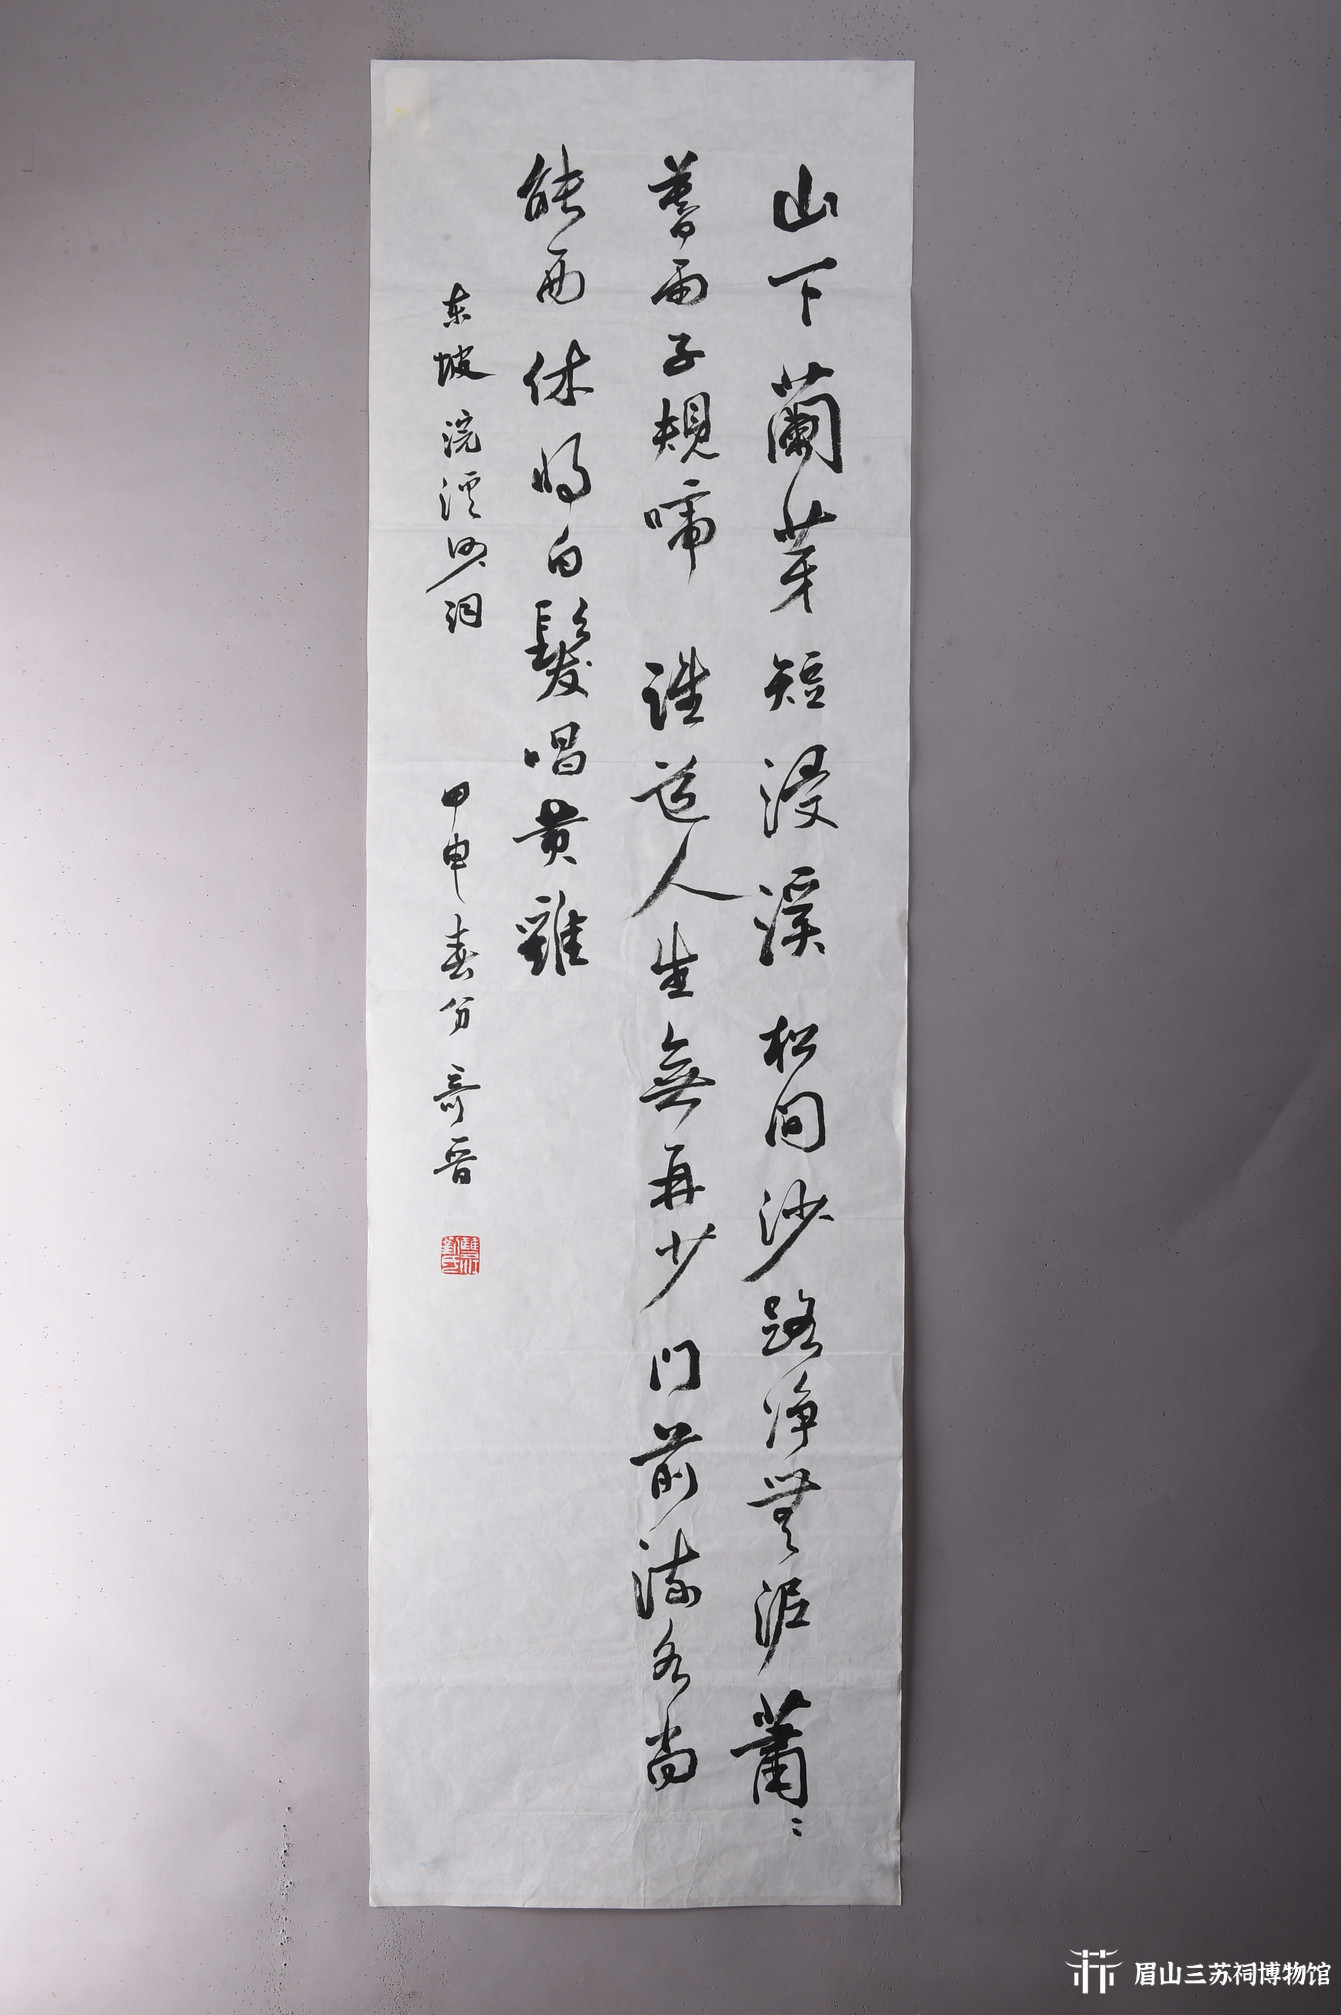 山下蘭芽短浸溪松间沙路净無泥蕭〻
暮雨子規啼誰道人生無再少门前流水尚
能西休将白髮唱黄雞
东坡浣溪沙词 甲申春分 奇晋
眉山三苏祠博物馆